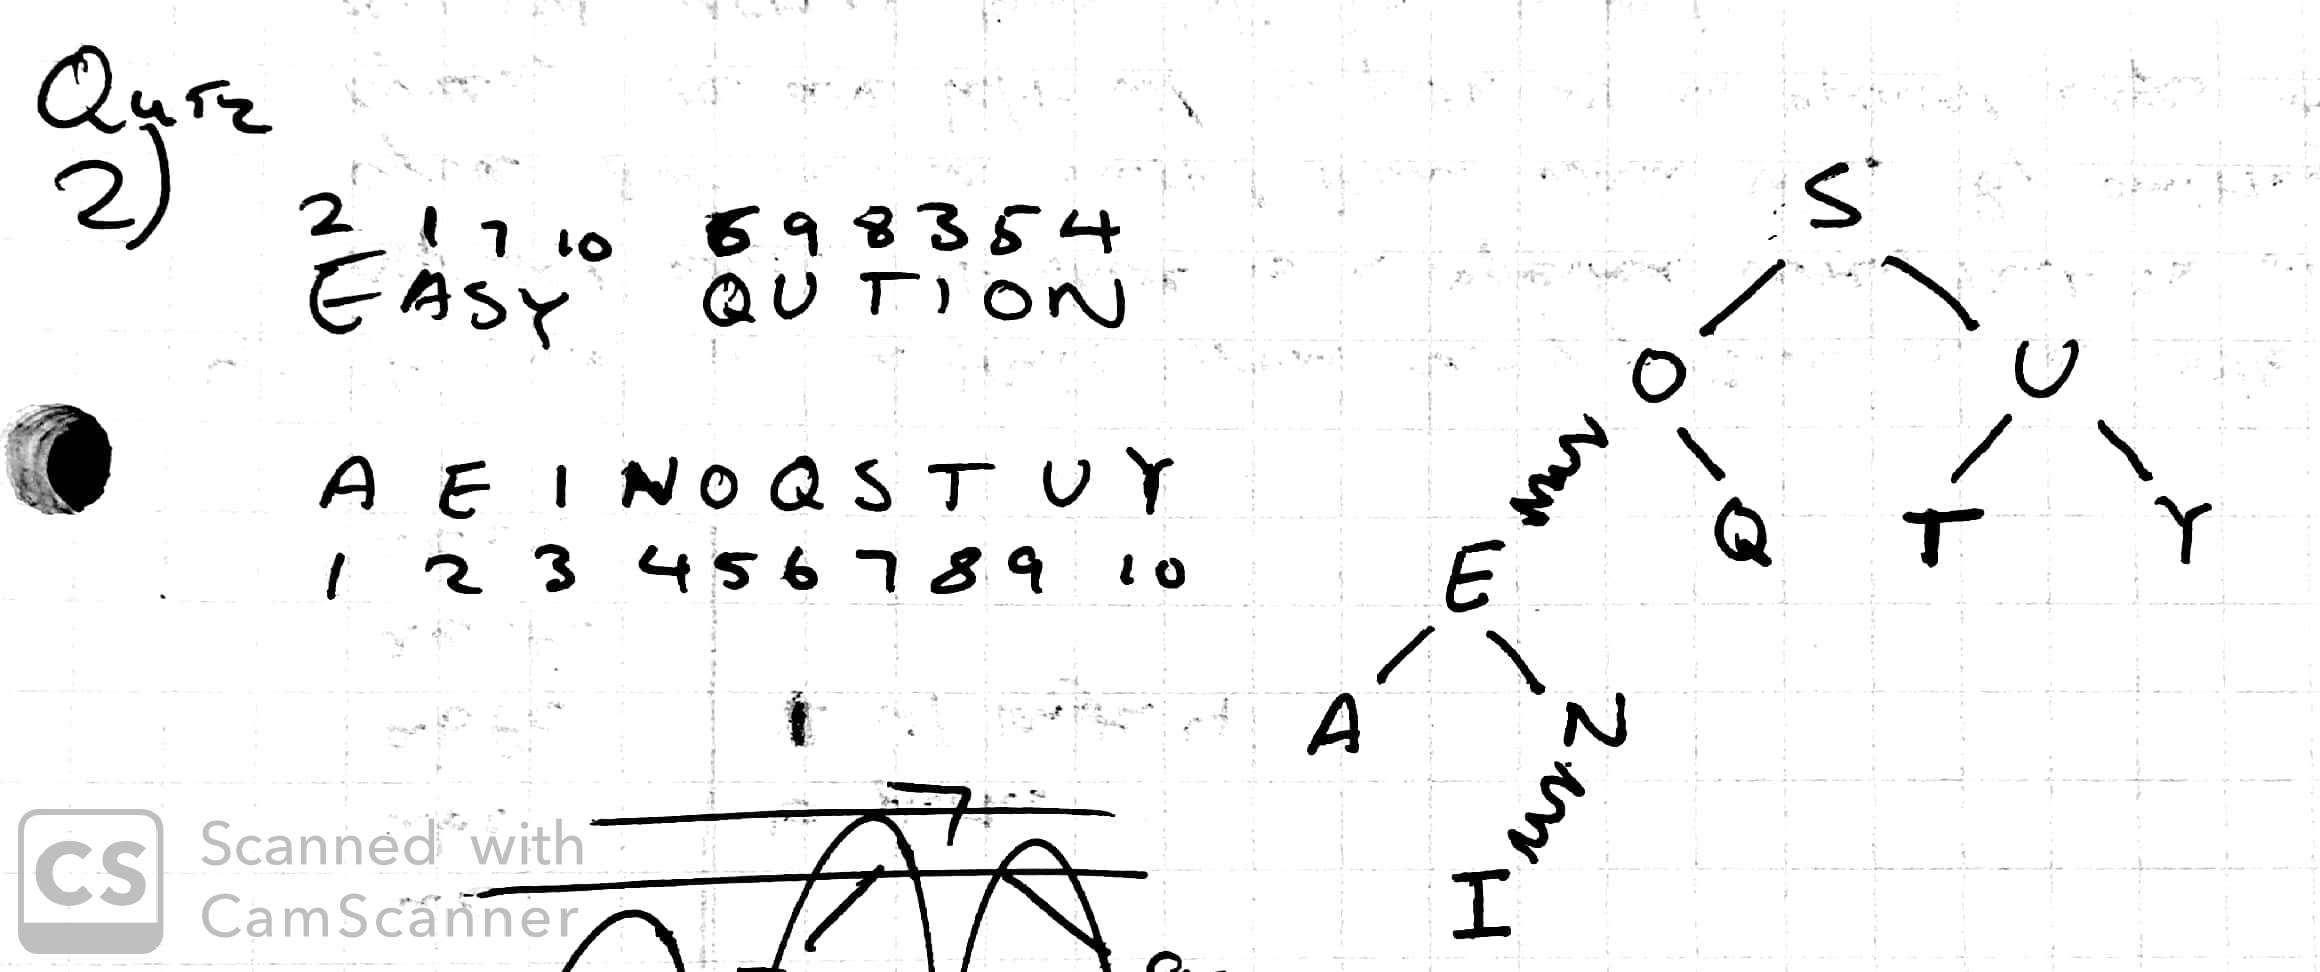 Quiz
2)
2 1 7 10 6 9 8 3 5 4
EASY QUTION
A E I N O Q S T U Y
1 2 3 4 5 6 7 8 9 10
S
O U
E Q T Y
A N
I
7
CS Scanned with
CamScanner